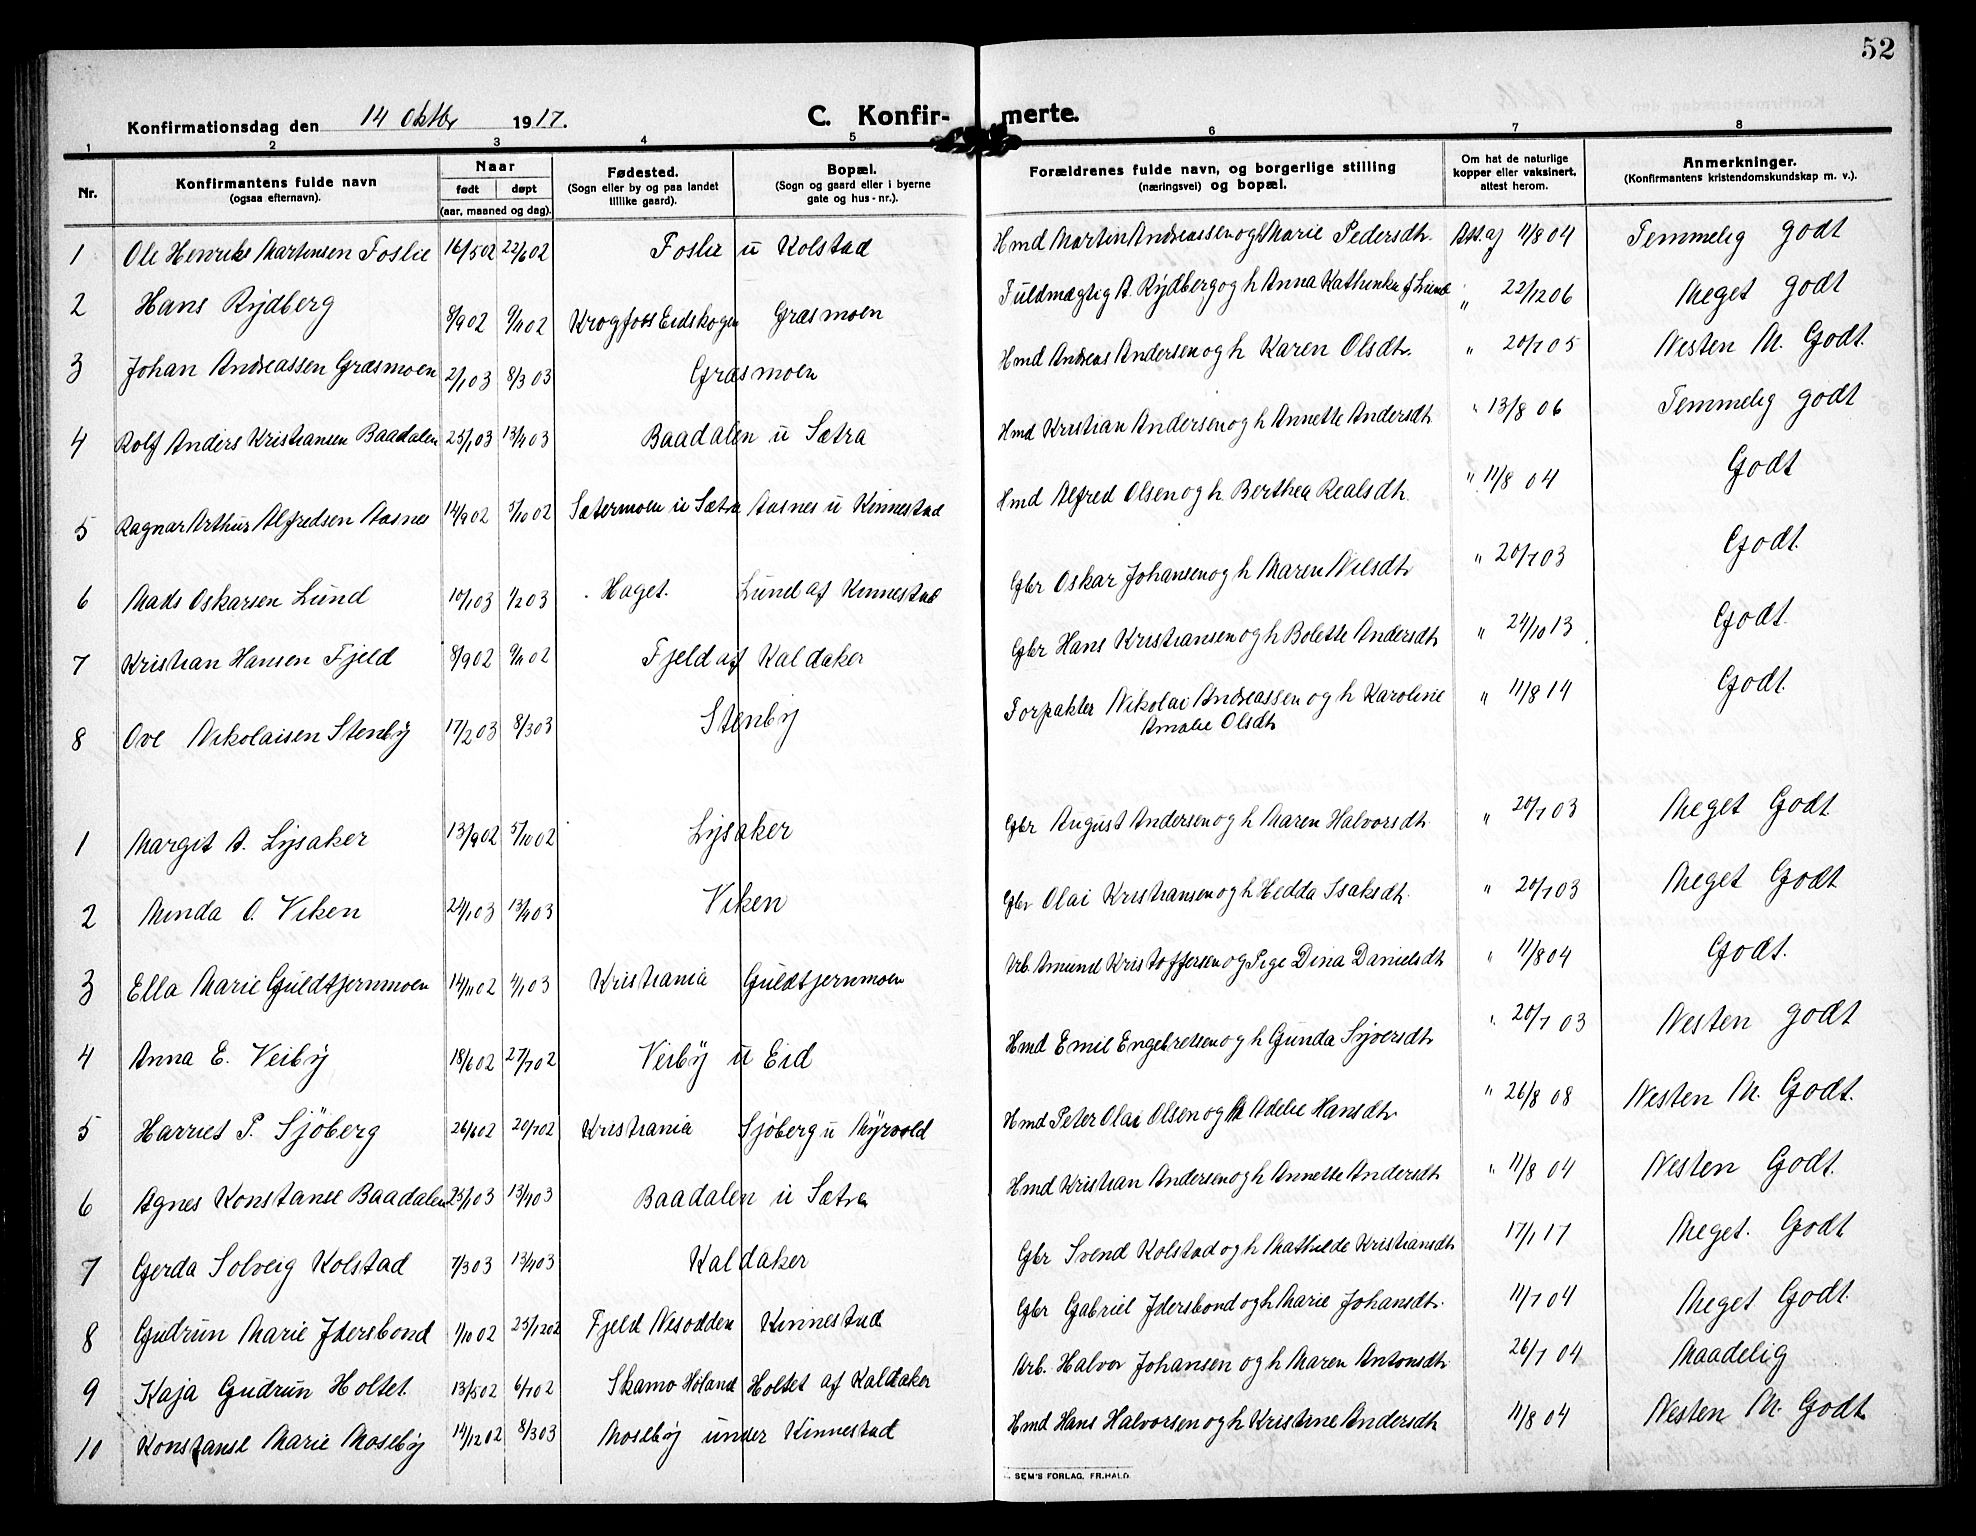 52
Konfirmationsdag den 14 Oktbr 1917.
C. Konfirmerte.
1 2 3 4 5 6 7 8
Nr.
Konfirmantens fulde navn
(ogsaa efternavn).
Naar
født døpt
(aar, maaned og dag).
Fødested.
(Sogn eller by og paa landet
tillike gaard).
Bopæl.
(Sogn og gaard eller i byerne
gate og hus-nr.).
Forældrenes fulde navn, og borgerlige stilling
(næringsvei) og bopæl.
Om hat de naturlige
kopper eller vaksinert,
attest herom.
Anmerkninger.
(Konfirmantens kristendomskundskap m. v.).
1 Ole Henriks Martensen Foslie 16/5 02 22/6 02 Foslie u Kolstad Hmd Martin Andreassen og h Marie Pedersdtr. Att. af 11/8 04 Temmelig godt
2 Hans Rydberg 8/9 02 9/11 02 Krogfoss Eidskogen Græsmoen Fuldmægtig A. Rydberg og h Anna Kathinka f Lund " 22/12 06 Meget godt
3 Johan Andreassen Græsmoen 2/1 03 8/3 03 Græsmoen Hmd Andreas Andersen og h Karen Olsdtr. " 20/7 05 Nesten M. Godt.
4 Rolf Anders Kristiansen Baadalen 25/1 03 13/4 03 Baadalen u Sætra Hmd Kristian Andersen og h Annette Andersdtr " 13/8 06 Temmelig godt
5 Ragnar Arthur Alfredsen Aasnes 14/9 02 5/10 02 Sætermoen u Sætra Aasnes u Kinnestad Hmd Alfred Olsen og h Berthea Realsdtr. " 11/8 04 Godt
6 Mads Oskarsen Lund 10/1 03 1/2 03 Haget. Lund af Kinnestad Gbr Oskar Johansen og h Maren Nilsdtr " 20/7 03 Godt.
7 Kristian Hansen Fjeld 8/9 02 9/11 02 Fjeld af Kaldaker Gbr Hans Kristiansen og h Bolette Andersdtr " 24/10 13 Godt.
8 Ove Nikolaisen Stenby 17/2 03 8/3 03 Stenby Forpakter Nikolai Andreassen og h Karoline " 11/8 14 Godt.
Amalie Olsdtr
1 Margit A. Lysaker 13/9 02 5/10 02 Lysaker Gbr August Andersen og h Maren Halvorsdtr. " 20/7 03 Meget Godt.
2 Minda O. Viken 24/1 03 13/4 03 Viken Gbr Olai Kristiansen og h Hedda Isaksdtr. " 20/7 03 Meget Godt
3 Ella Marie Guldtjernmoen 14/11 02 4/1 03 Kristiania Guldtjernmoen Arb. Amund Kristoffersen og Pige Dina Danielsdtr " 11/8 04 Godt.
4 Anna E. Veiby 18/6 02 27/7 02 Veiby u Eid Hmd Emil Engebretsen og h Gunda Syversdtr " 20/7 03 Nesten godt
5 Harriet P. Sjöberg 26/6 02 20/7 02 Kristiania Sjöberg u Myrvold Hmd Peter Olai Olsen og h Adelie Hansdtr. " 26/8 08 Nesten M. Godt.
6 Agnes Konstance Baadalen 25/1 03 13/4 03 Baadalen u Sætra Hmd Kristian Andersen og h Annette Andersdtr " 11/8 04 Nesten Godt.
7 Gerda Solveig Kolstad 7/3 03 13/4 03 Kaldaker Gbr Svend Kolstad og h Mathilde Kristiansdtr 17/1 17 Meget. Godt
8 Gudrun Marie Idersbond 1/10 02 25/12 02 Fjeld Nesodden Kinnestad Gbr Gabriel Idersbond og h Marie Johansdtr. 11/7 04 Meget Godt.
9 Kaja Gudrun Holtet 13/5 02 6/7 02 Skamo Höland Holtet af Kaldaker Arb. Halvor Johansen og h Maren Antonsdtr 26/7 04 Maadelig
10 Konstanse Marie Moseby 14/12 02 8/3 03 Moseby under Kinnestad Hmd Hans Halvorsen og h Kristine Andersdtr 11/8 04 Nesten M. Godt
SEM'S FORLAG, FR.HALD.